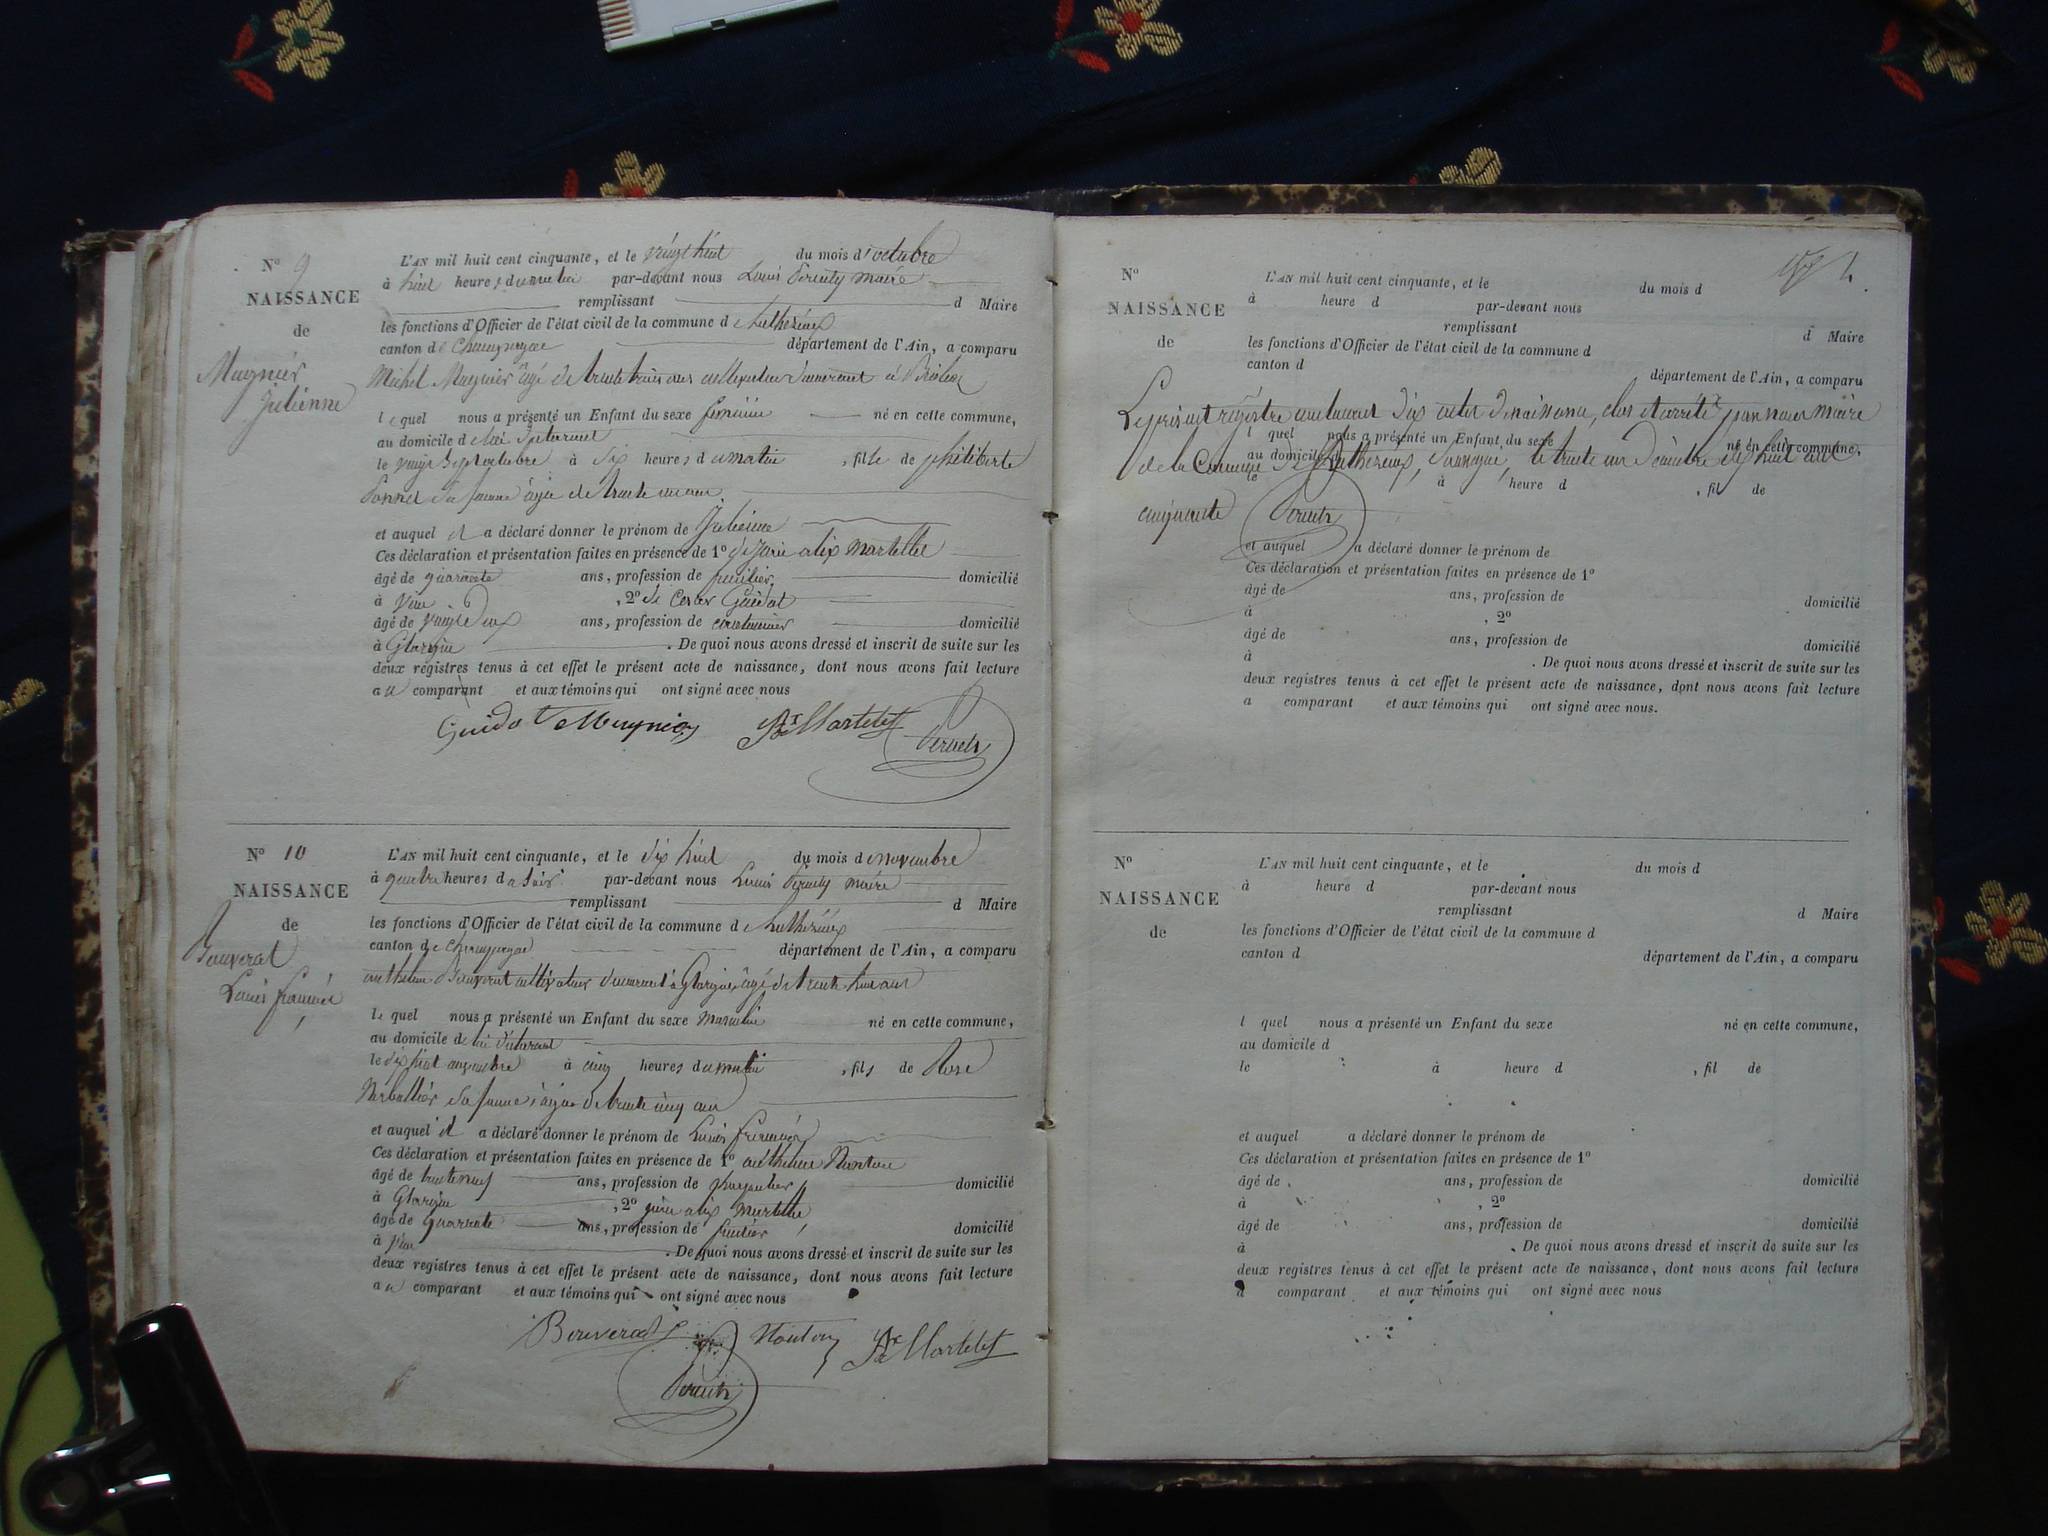 N° 9
NAISSANCE
de
Mugnier
Julienne
L'AN mil huit cent cinquante, et le vingt huit du mois d'octobre
à huit heures du matin par-devant nous Louis maire
remplissant d Maire
les fonctions d'Officier de l'état civil de la commune de Luthézieu
canton de Champagne département de l'Ain, a comparu
Michel Mugnier âgé de trente trois ans cultivateur demeurant à
le quel nous a présenté un Enfant du sexe féminin né en cette commune,
au domicile de lui déclarant
le vingt sept octobre à six heures du matin, fille de philiberte
sa femme âgée de trente un ans
et auquel il a déclaré donner le prénom de Julienne
Ces déclaration et présentation faites en présence de 1° alix martelet
âgé de quarante ans, profession de domicilié
à , 2° de Cesar Guidot
âgé de vingt deux ans, profession de cantonnier domicilié
à . De quoi nous avons dressé et inscrit de suite sur les
deux registres tenus à cet effet le présent acte de naissance, dont nous avons fait lecture
au comparant et aux témoins qui ont signé avec nous
Guidot Mugnier Martelet
N° 10
NAISSANCE
de
Bouverat
Louis
L'AN mil huit cent cinquante, et le dix huit du mois de novembre
à quatre heures du soir par-devant nous Louis maire
remplissant d Maire
les fonctions d'Officier de l'état civil de la commune de Luthézieu
canton de Champagne département de l'Ain, a comparu
anthelme Bouverat cultivateur demeurant à âgé de trente huit ans
le quel nous a présenté un Enfant du sexe masculin né en cette commune,
au domicile de lui déclarant
le dix huit novembre à cinq heures du matin, fils de Rose
sa femme âgée de trente cinq ans
et auquel il a déclaré donner le prénom de Louis
Ces déclaration et présentation faites en présence de 1° anthelme
âgé de trente neuf ans, profession de domicilié
à , 2° alix martelet
âgé de quarante ans, profession de domicilié
à . De quoi nous avons dressé et inscrit de suite sur les
deux registres tenus à cet effet le présent acte de naissance, dont nous avons fait lecture
au comparant et aux témoins qui ont signé avec nous
Bouverat Martelet
N°
NAISSANCE
de
L'AN mil huit cent cinquante, et le du mois d
à heure d par-devant nous
remplissant d Maire
les fonctions d'Officier de l'état civil de la commune d
canton d département de l'Ain, a comparu
Le présent registre contenant dix actes de naissance, clos et arrêté par nous maire
l quel nous a présenté un Enfant du sexe né en cette commune,
au domicile d
de la Commune de Luthézieu, soussigné, le trente un décembre dix huit cent
le à heure d , fil de
cinquante
et auquel a déclaré donner le prénom de
Ces déclaration et présentation faites en présence de 1°
âgé de ans, profession de domicilié
à , 2°
âgé de ans, profession de domicilié
à . De quoi nous avons dressé et inscrit de suite sur les
deux registres tenus à cet effet le présent acte de naissance, dont nous avons fait lecture
a comparant et aux témoins qui ont signé avec nous.
N°
NAISSANCE
de
L'AN mil huit cent cinquante, et le du mois d
à heure d par-devant nous
remplissant d Maire
les fonctions d'Officier de l'état civil de la commune d
canton d département de l'Ain, a comparu
l quel nous a présenté un Enfant du sexe né en cette commune,
au domicile d
le à heure d , fil de
et auquel a déclaré donner le prénom de
Ces déclaration et présentation faites en présence de 1°
âgé de ans, profession de domicilié
à , 2°
âgé de ans, profession de domicilié
à . De quoi nous avons dressé et inscrit de suite sur les
deux registres tenus à cet effet le présent acte de naissance, dont nous avons fait lecture
a comparant et aux témoins qui ont signé avec nous